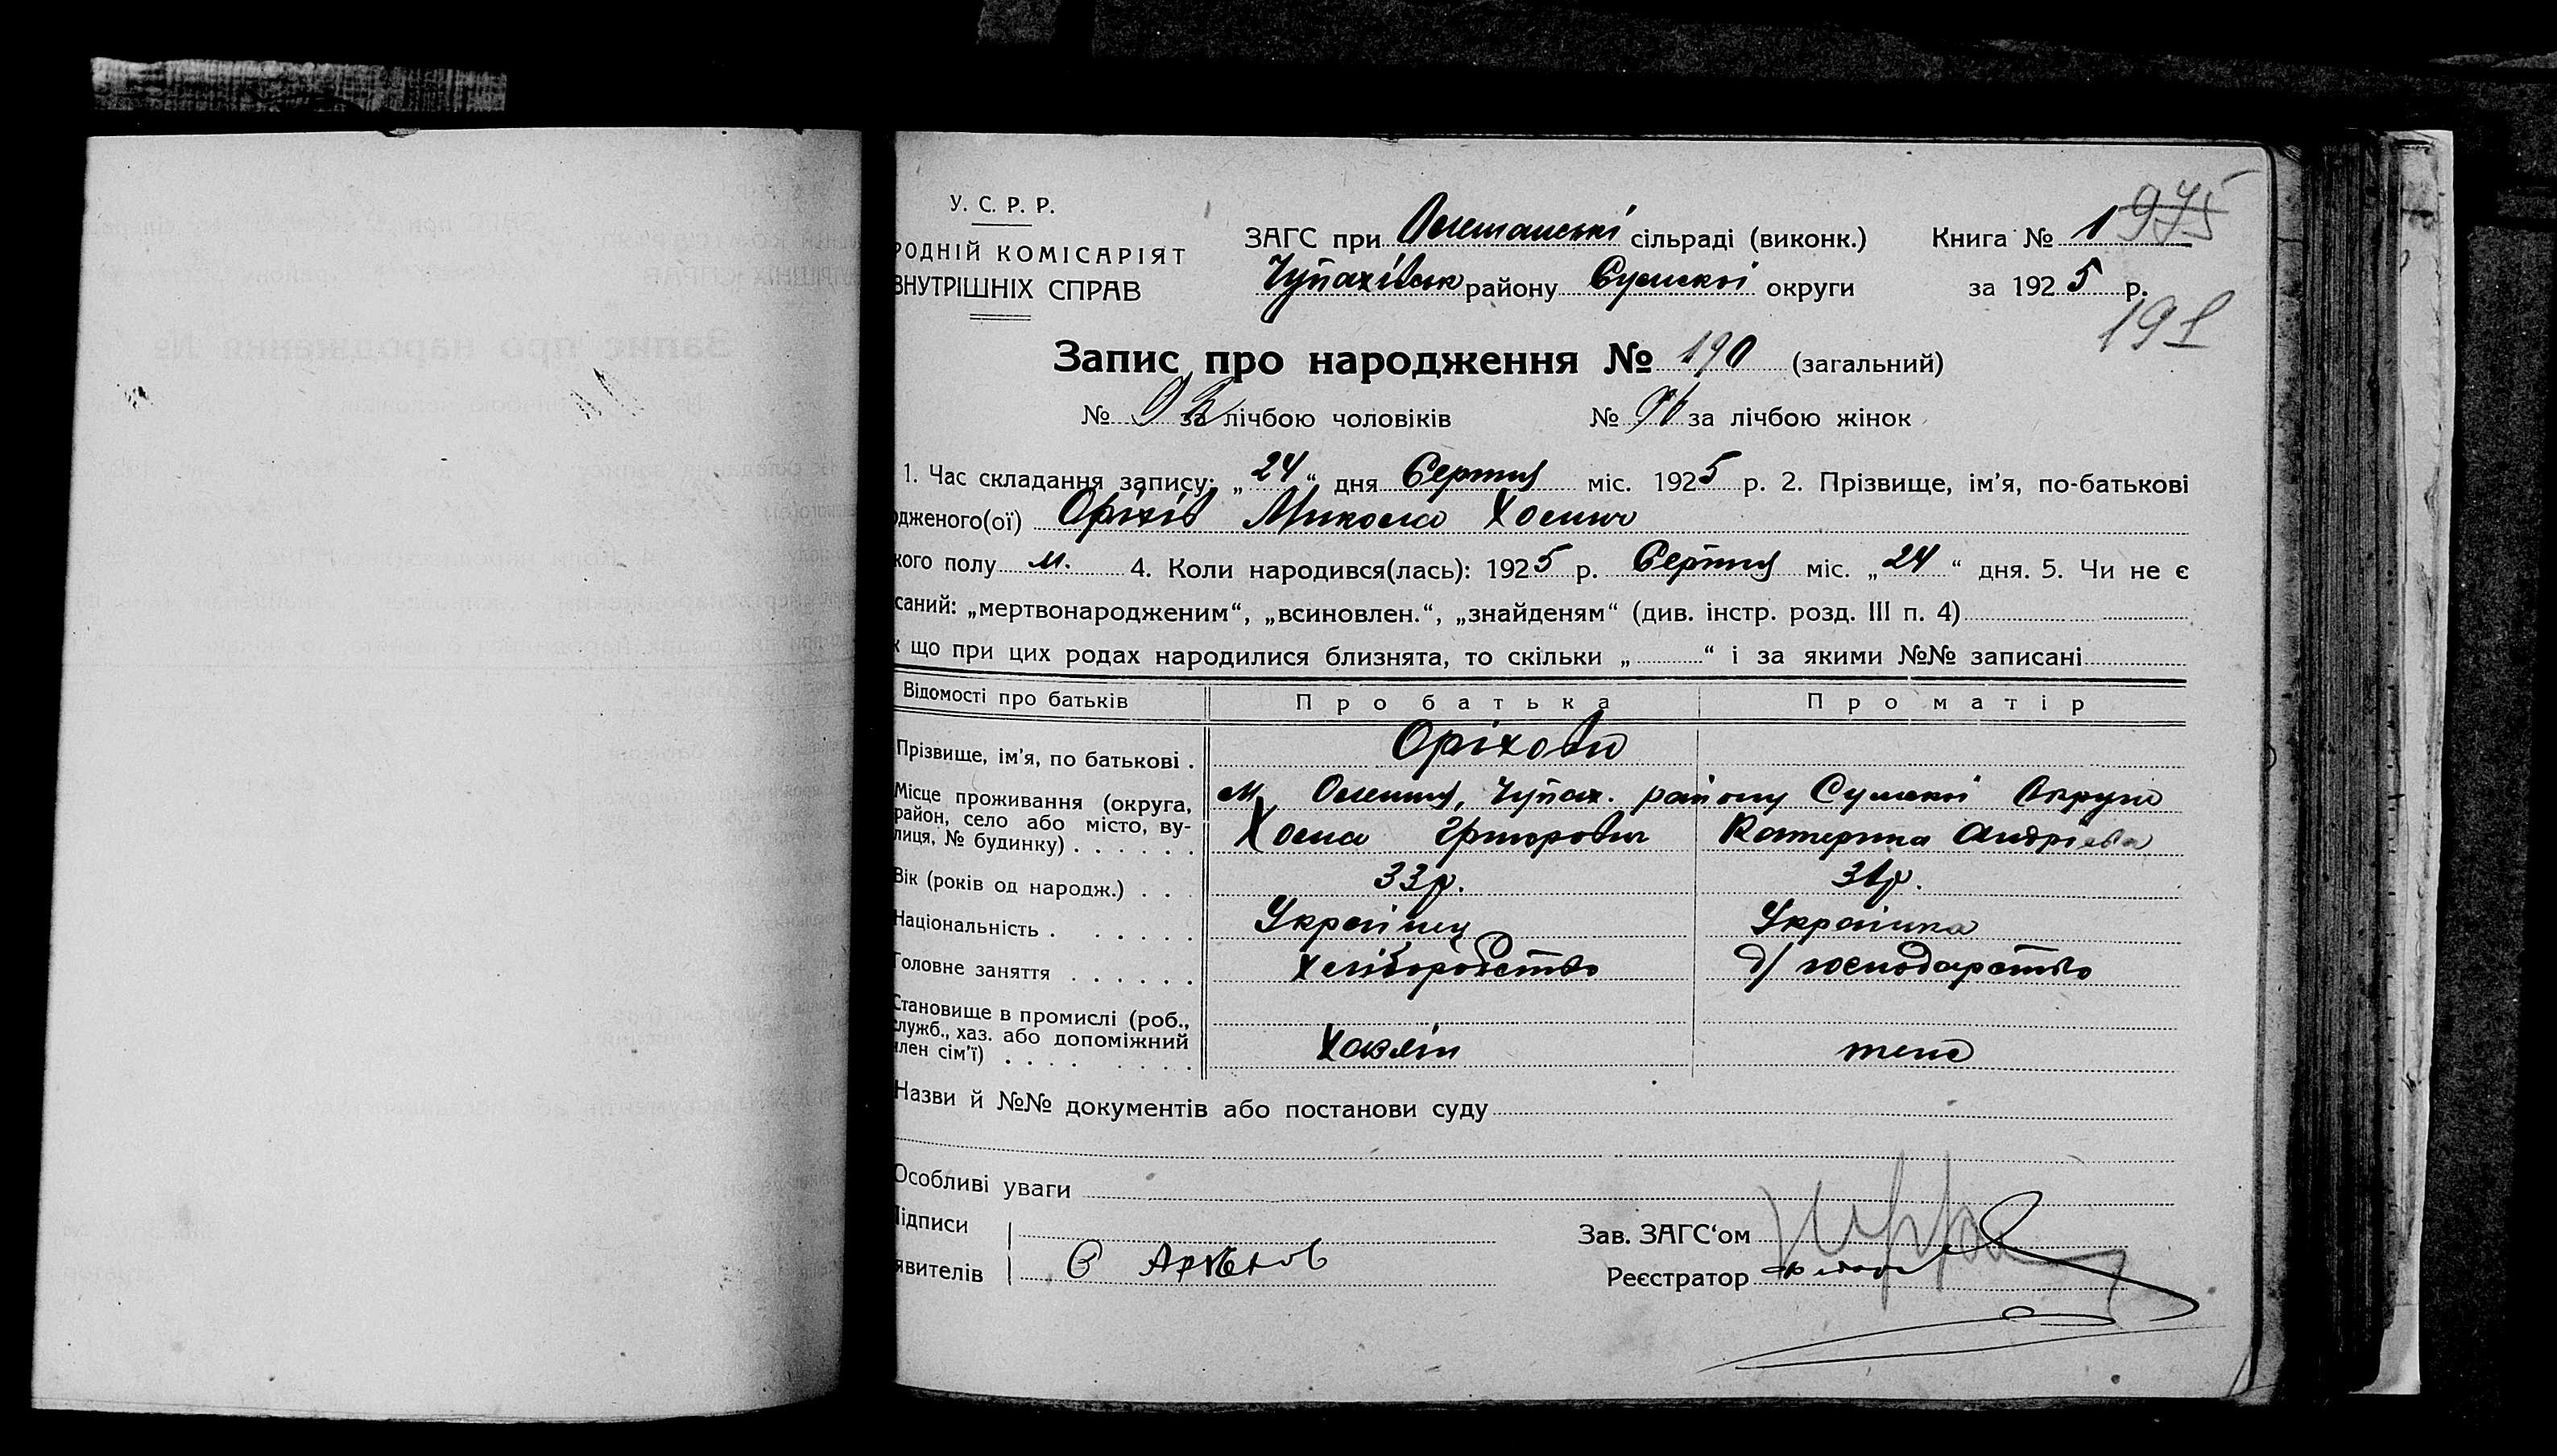 У. С. Р. Р.
РОДНІЙ КОМІСАРІЯТ
ВНУТРІШНІХ СПРАВ
ЗАГС при Олешанські сільраді (виконк.) Книга № 1 975
Чупахівськ району Сумскої округи за 1925 р.
191
Запис про народження № 190 (загальний)
№ за лічбою чоловіків № 96 за лічбою жінок
1. Час складання запису: „24“ дня Серпня міс. 1925 р. 2. Прізвище, ім'я, по-батькові
дженого(ої) Оріхів Микола Хомич
кого полу м. 4. Коли народився(лась): 1925 р. Серпня міс. „24“ дня. 5. Чи не є
саний: „мертвонародженим“, „всиновлен.“, „знайденям“ (див. інстр. розд. III п. 4)
що при цих родах народилися близнята, то скільки „ “ і за якими №№ записані
Відомості про батьків Про батька Про матір
Прізвище, ім'я, по батькові . Оріхови
Місце проживання (округа, район, село або місто, вулиця, № будинку) . . . . . . м Олешня, Чупах. району Сумскої Округи
Хома Григорович Катерина Андріевна
Вік (років од народж.) . . . 33р. 31р.
Національність . . . . . . Українец Українка
Головне заняття . . . . . . Хліборобство д/господарство
Становище в промислі (роб.,
служб., хаз. або допоміжний
член сім'ї) . . . . . . . . Хазяїн жена
Назви й №№ документів або постанови суду
Особливі уваги
ідписи
явителів
Зав. ЗАГС'ом
Реєстратор